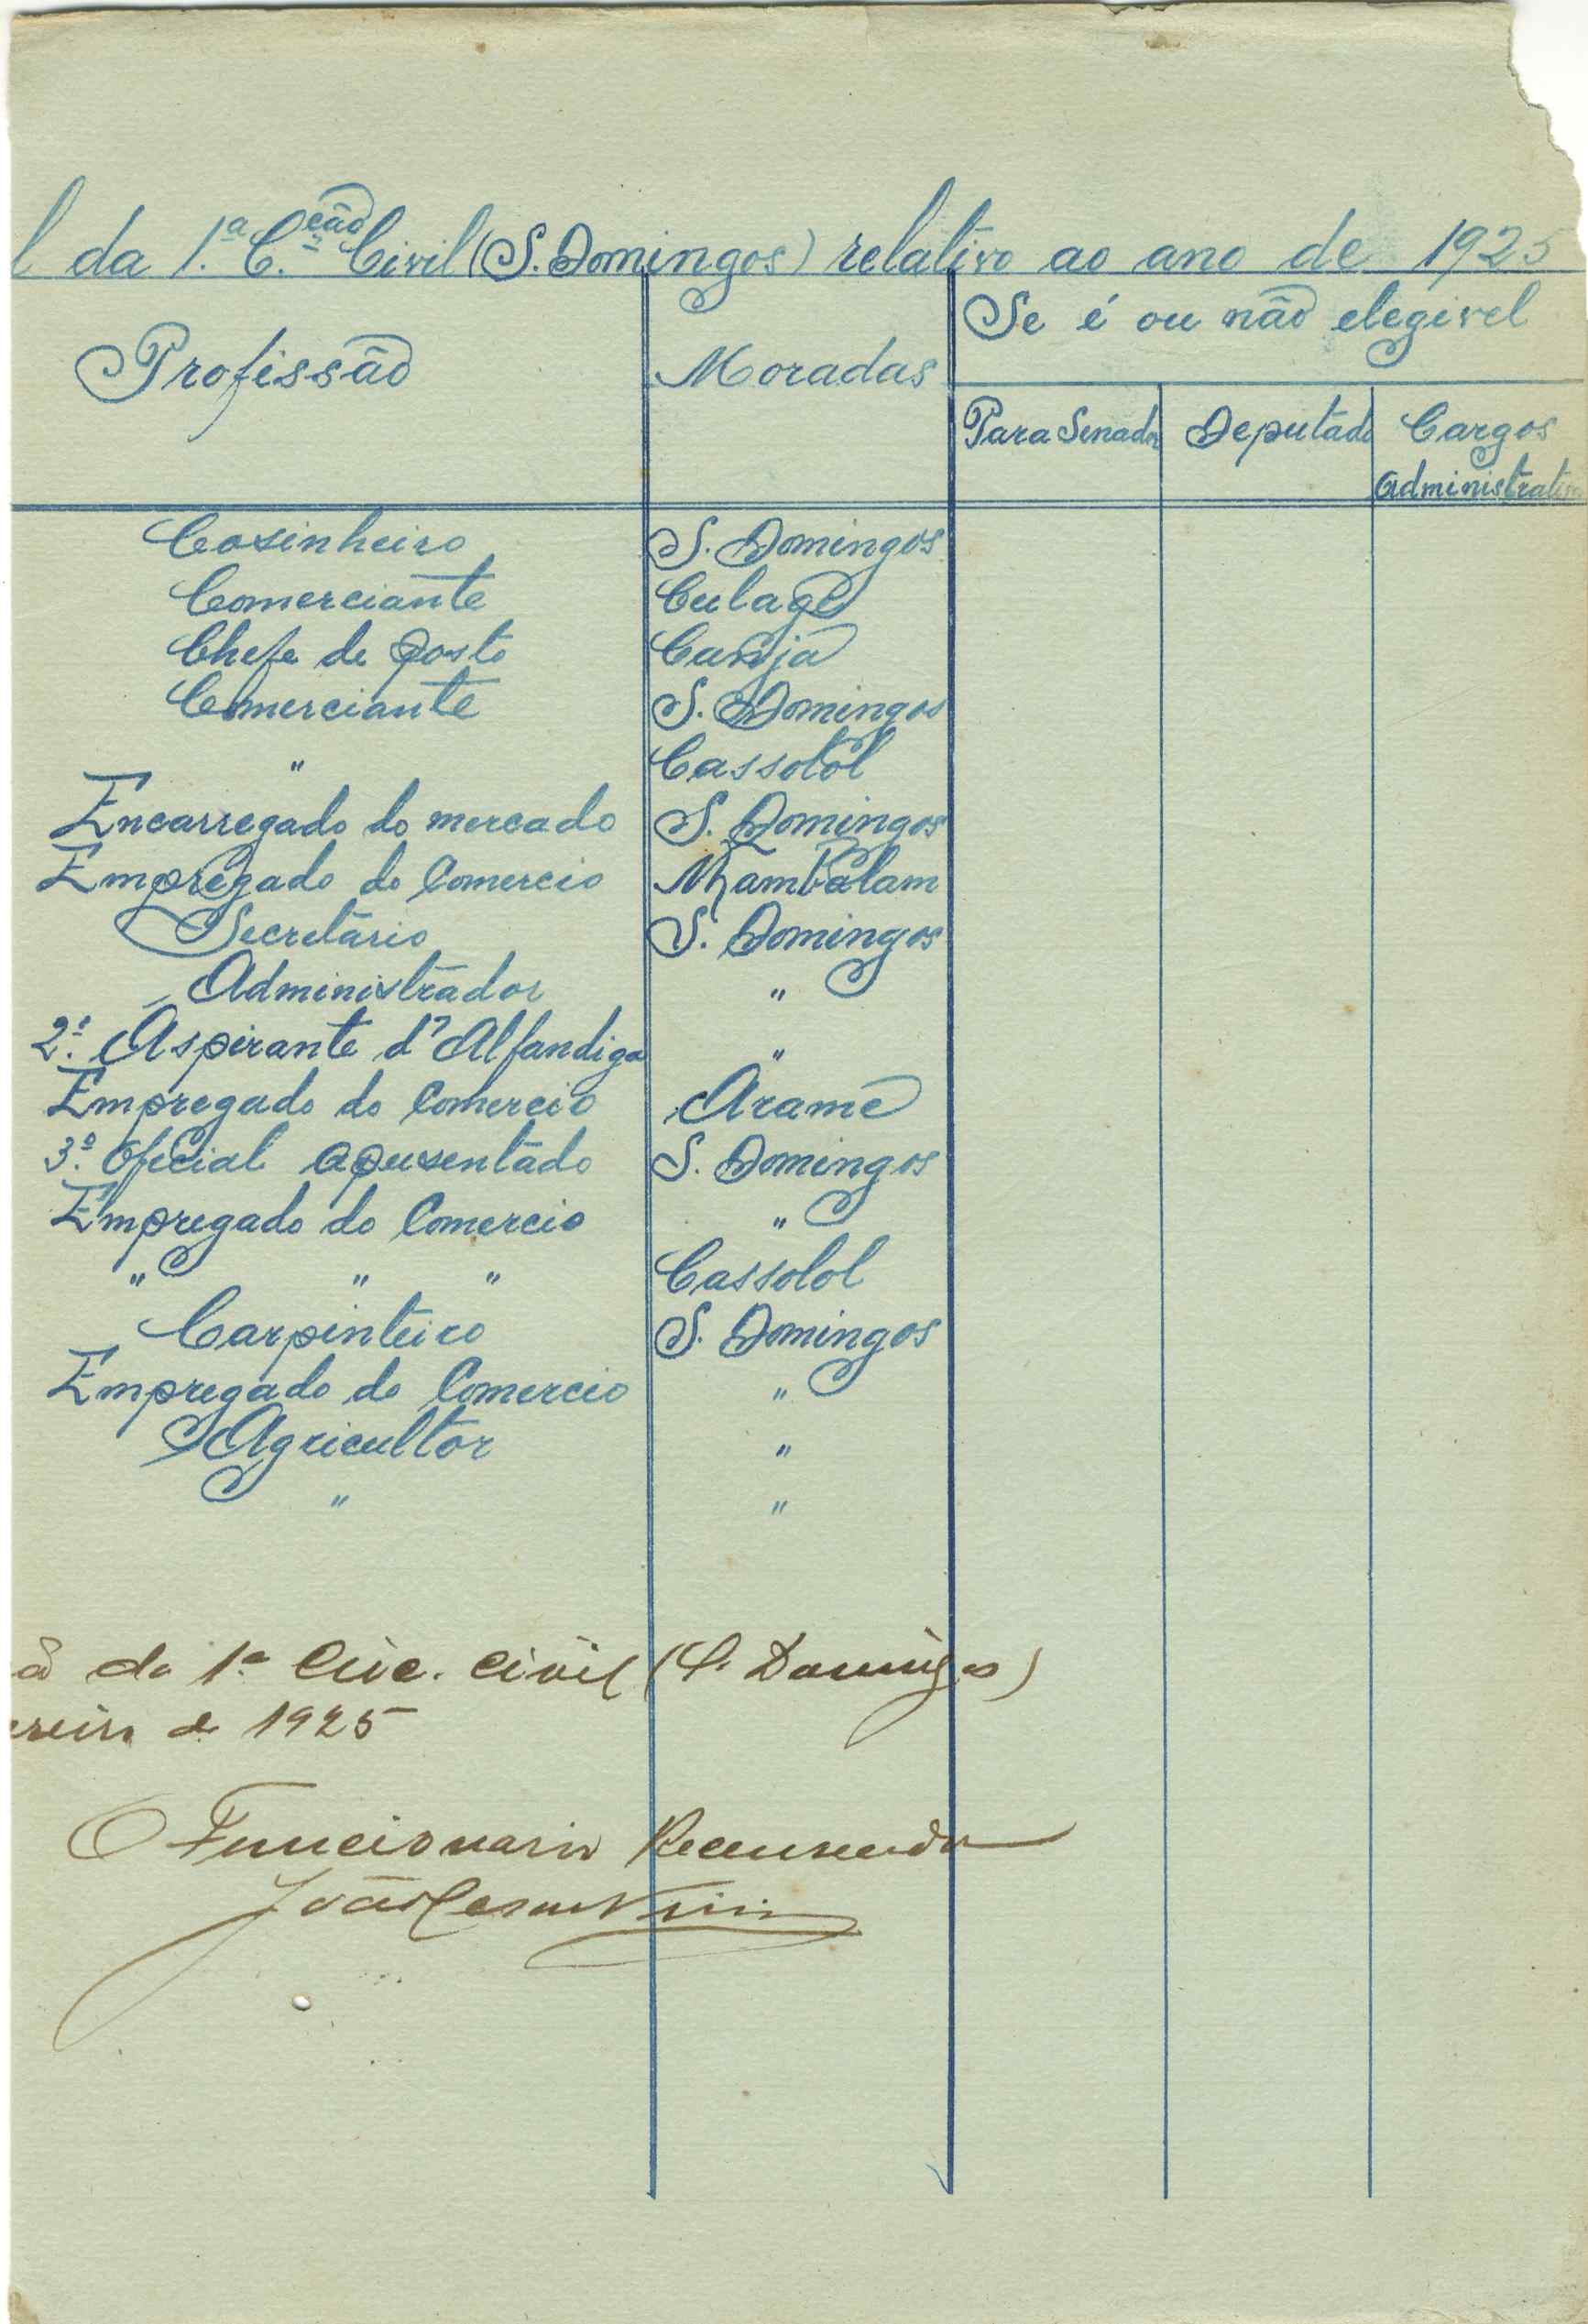 l da 1.ª C.ção Civil (S. Domingos) relativo ao ano de 1925
Se é ou não elegivel
Profissão Moradas
Para Senador Deputado Cargos
Administrativos
Cosinheiro S. Domingos
Comerciante Culagé
Chefe de Posto Canjá
Comerciante S. Domingos
" Cassolól
Encarregado do mercado S. Domingos
Empregado do Comercio Nhambalam
Secretário S. Domingos
Administrador "
2.º Aspirante d'Alfandiga "
Empregado do Comercio Arame
3.º Oficial aposentado S. Domingos
Empregado do Comercio "
" " " Cassolol
Carpinteiro S. Domingos
Empregado do Comercio "
Agricultor "
" "
da 1ª Circ. Civil (S. Domingos)
ereiro de 1925
O Funcionario Recenseador
João